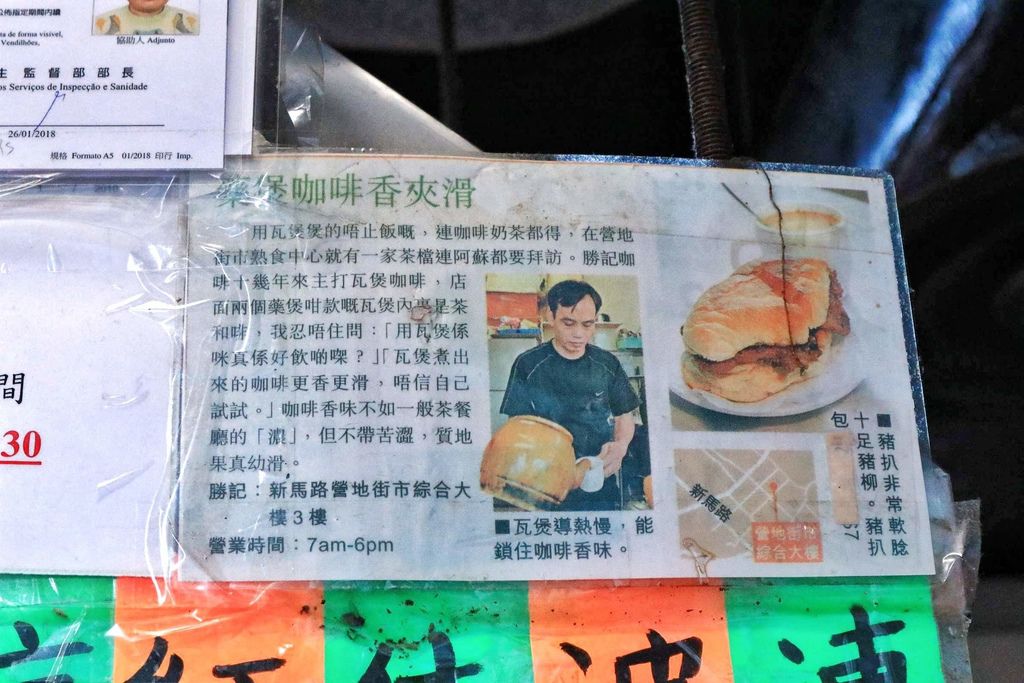 公佈指定期間內續
ta de forma visível,
Vendilhões,
協助人 Adjunto
生監督部部長
os Serviços de Inspecção e Sanidade
26/01/2018
規格 Formato A5 01/2018 印行 Imp.
間
30
藥煲咖啡香夾滑
用瓦煲煲的唔止飯嘅，連咖啡奶茶都得，在營地
街市熟食中心就有一家茶檔連阿蘇都要拜訪。勝記咖
啡十幾年來主打瓦煲咖啡，店
面兩個藥煲咁款嘅瓦煲內裏是茶
和啡，我忍唔住問：「用瓦煲係
咪真係好飲啲㗎？」「瓦煲煮出
來的咖啡更香更滑，唔信自己
試試。」咖啡香味不如一般茶餐
廳的「濃」，但不帶苦澀，質地
果真幼滑。
勝記：新馬路營地街市綜合大
樓3樓
營業時間：7am-6pm
■瓦煲導熱慢，能
鎖住咖啡香味。
■豬扒非常軟腍
十足豬柳。豬扒
包
67
新馬路
營地街市
綜合大樓